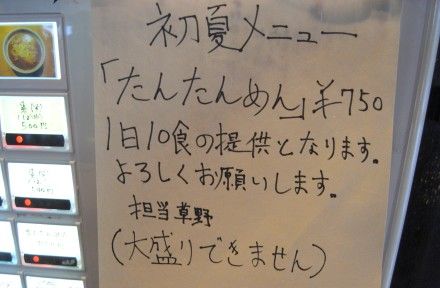 初夏メニュー
「たんたんめん」¥750
1日10食の提供となります。
よろしくお願いします。
担当草野
(大盛りできません)